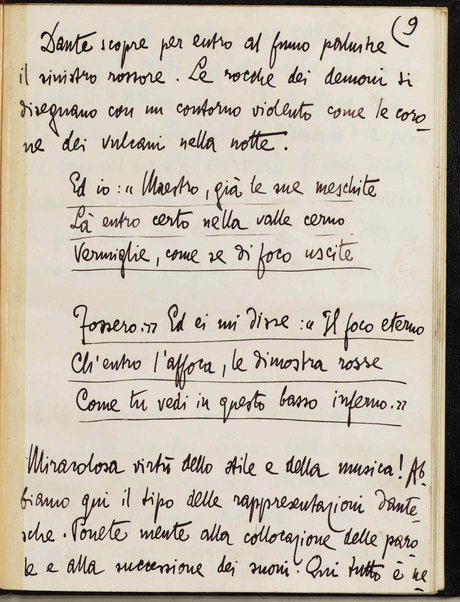 (9
Dante scopre per entro al fumo palustre
il sinistro rossore. Le rocche dei demoni si
disegnano con un contorno violento come le coro-
ne dei vulcani nella notte.
Ed io: "Maestro, già le sue meschite
Là entro certo nella valle cerno
Vermiglie, come se di foco uscite
Fossero." Ed ei mi disse: "Il foco eterno
Ch'entro l'affoca, le dimostra rosse
Come tu vedi in questo basso inferno."
Miracolosa virtù dello stile e della musica! Ab-
biamo qui il tipo delle rappresentazioni dante-
sche. Ponete mente alla collocazione delle paro-
le e alla successione dei suoni. Qui tutto è ne